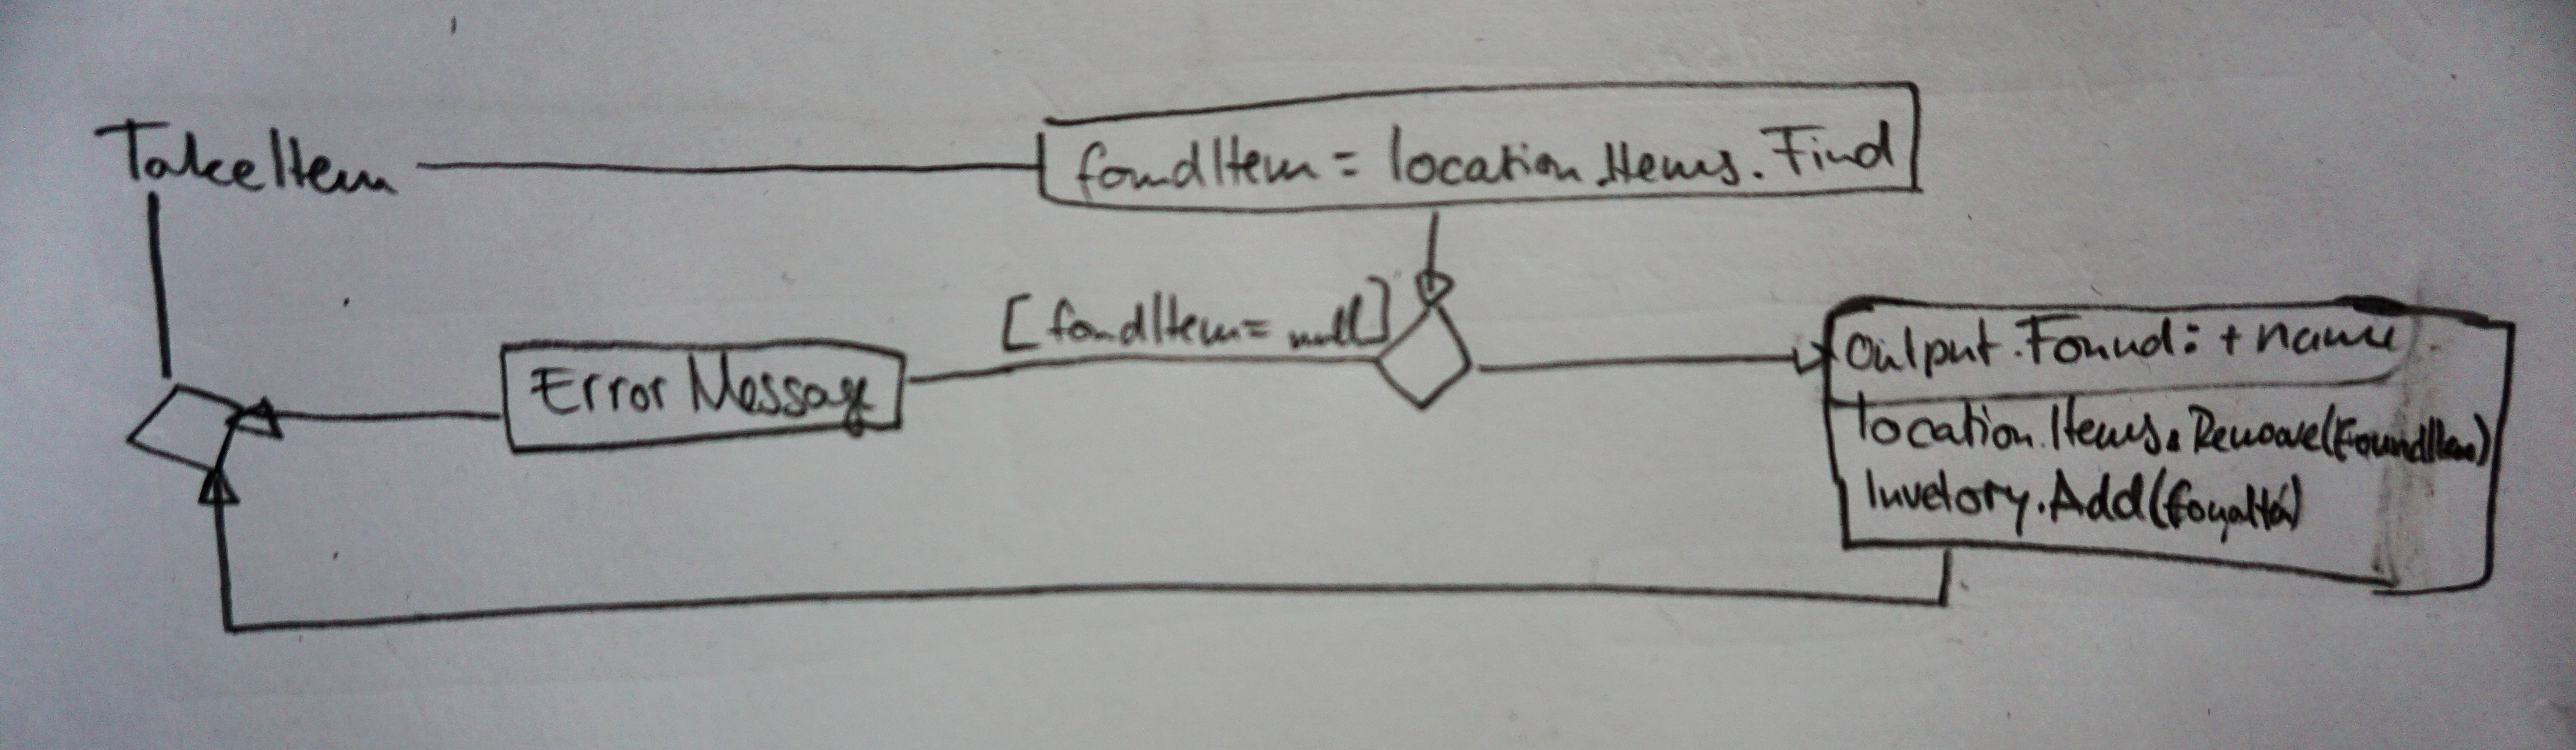 TakeItem
foundItem = location.Items.Find
[foundItem = null]
Error Message
output.Found: + name
location.Items.Remove(FoundItem)
Invetory.Add(